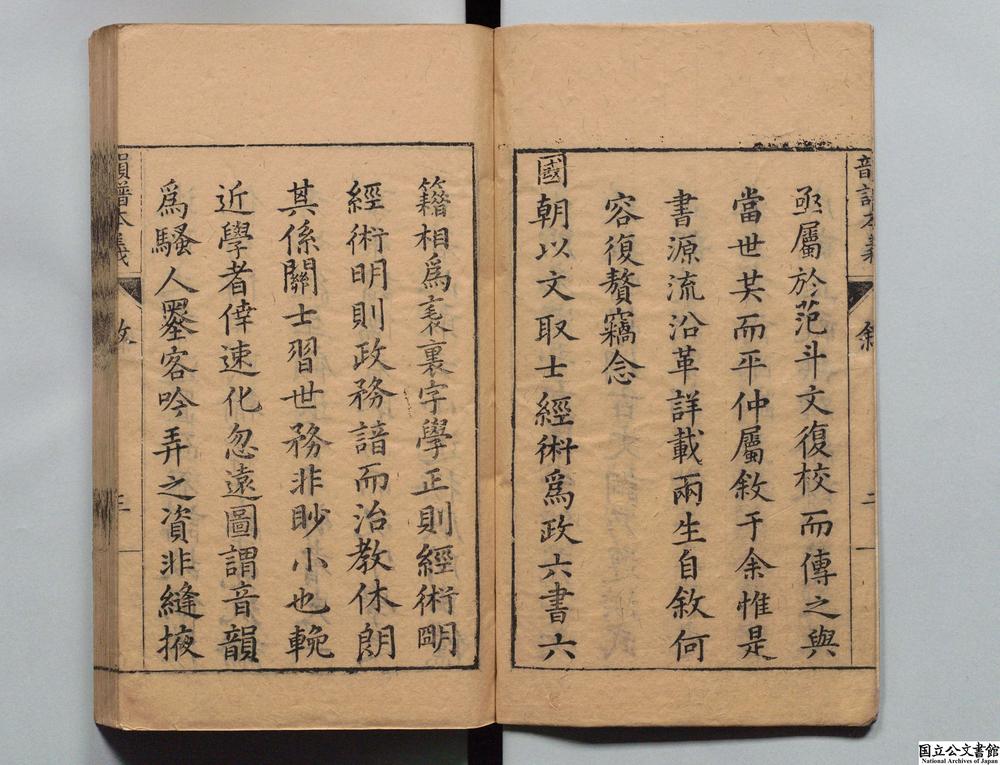 亟屬於范斗文復校而傳之與
當世其而平仲屬敘于余惟是
書源流沿革詳載兩生自敘何
容復贅竊念
國朝以文取士經術爲政六書六
籍相爲表裏字學正則經術明
經術明則政務諳而治教休朗
其係關士習世務非眇小也輓
近學者倖速化忽遠圖謂音韻
爲騷人墨客吟弄之資非縫掖
韻譜本義
敘
二
韻譜本義
敘
三
国立公文書館
National Archives of Japan